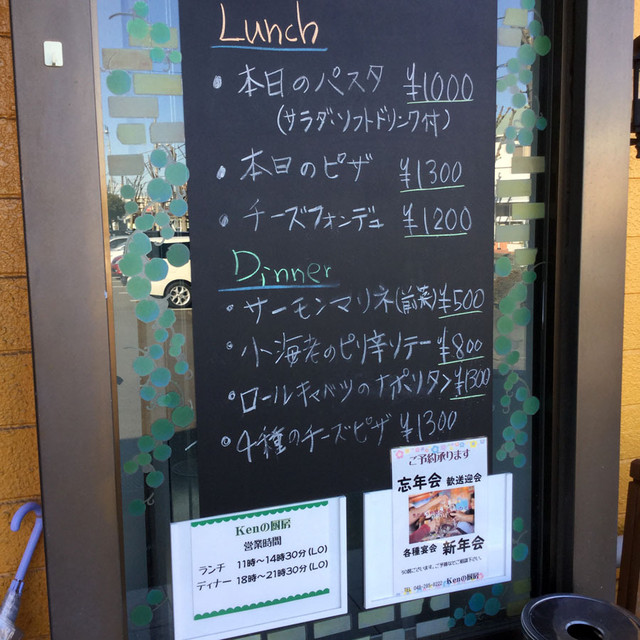 Lunch
・本日のパスタ ¥1000
(サラダ・ソフトドリンク付)
・本日のピザ ¥1300
・チーズフォンデュ ¥1200
Dinner
・サーモンマリネ(前菜)¥500
・小海老のピリ辛ソテー ¥800
・ロールキャベツのナポリタン ¥1300
・4種のチーズピザ ¥1300
Kenの厨房
営業時間
ランチ 11時〜14時30分(LO)
ディナー 18時〜21時30分(LO)
ご予約承ります
忘年会 歓送迎会
各種宴会 新年会
Kenの厨房